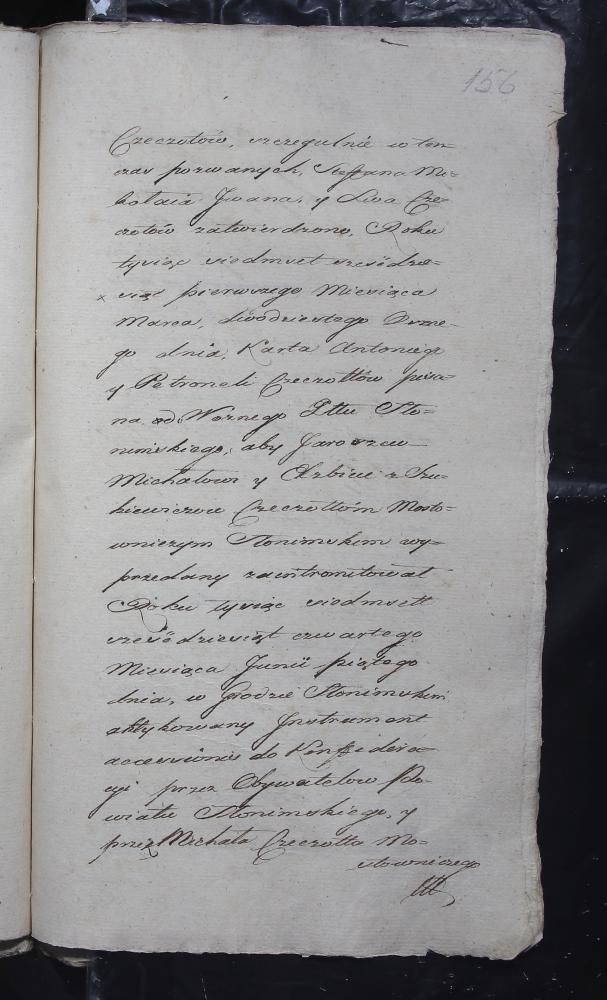 156
Czeczotów, szczegulnie w ten
czas pozwanych, Steffana Mi=
kołaia Jwana, y Lwa Cze=
czotów zatwierdzono, Roku
tysiąc siedmset sześćdzie=
x siąt pierwszego Miesiąca
Marca, dwódziestego Osme=
go dnia, Karta Antoniego
y Petroneli Czeczottów pisa=
na od Woznego Pttu Sło=
nimskiego, aby Jaroszew
Michałowi y z
Czeczottóm Mosto=
wniczym Słonimskim wy=
przedany zaintromitował
Roku tysiąc siedmsett
sześćdziesiąt czwartego
Miesiąca Junii piątego
dnia, w Grodzie Słonimskim
aktykowany Jnstrument
accessionis do Konffidera=
cyi przez Obywatelow Po=
wiatu Słonimskiego, y
przez Michała Czeczotta Mo=
stowniczego